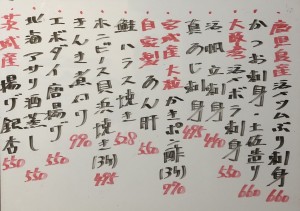 鹿児島産 活〆かんぱち刺身 660
かつお刺身・土佐造り 660
大阪産 活〆ボラ刺身 550
活〆帆立刺身 440
真あじ刺身 495
宮城産 大粒 かきポン酢(3ヶ) 970
自家製 あん肝 550
鮭ハラス焼き 528
本ニビース貝浜焼き(3ヶ) 495
きんき煮付け 970
エボダイ唐揚げ 550
北海アサリ酒蒸し 550
茨城産 揚げ銀杏 550